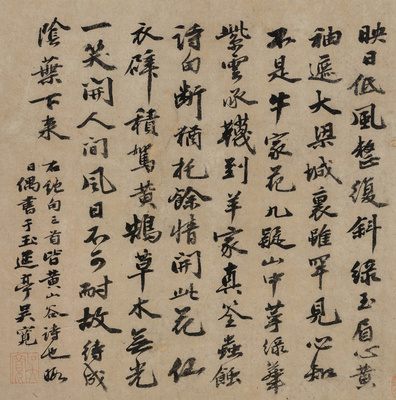 映日低風整復斜綠玉眉心黃
袖遮大梁城裏雖罕見心知
不是牛家花九疑山中萼綠華
紫雲承韈到羊家真筌蟲蝕
詩句斷猶托餘情開此花仙
衣襞積駕黃鵠草木無光
一笑開人間風日不可耐故待成
陰葉下來
右絕句三首皆黃山谷詩也暇
日偶書于玉延亭吳寬